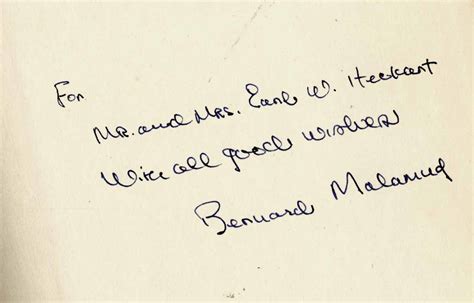 For
Mr. and Mrs. Earl W. Heckart
With all good wishes
Bernard Malamud